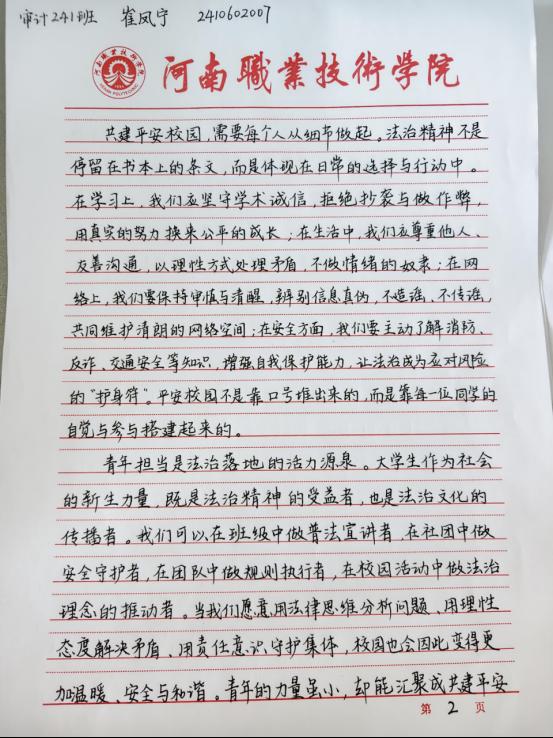 审计241班 崔凤宁 2410602007
河南職業技術學院
共建平安校园,需要每个人从细节做起。法治精神不是
停留在书本上的条文,而是体现在日常的选择与行动中。
在学习上,我们应坚守学术诚信,拒绝抄袭与做作弊,
用真实的努力换来公平的成长;在生活中,我们应尊重他人、
友善沟通,以理性方式处理矛盾,不做情绪的奴隶;在网
络上,我们要保持审慎与清醒,辨别信息真伪,不造谣、不传谣,
共同维护清朗的网络空间;在安全方面,我们要主动了解消防、
反诈、交通安全等知识,增强自我保护能力,让法治成为应对风险
的“护身符”。平安校园不是靠口号堆出来的,而是靠每一位同学的
自觉与参与搭建起来的。
青年担当是法治落地的活力源泉。大学生作为社会
的新生力量,既是法治精神的受益者,也是法治文化的
传播者。我们可以在班级中做普法宣讲者,在社团中做
安全守护者,在团队中做规则执行者,在校园活动中做法治
理念的推动者。当我们愿意用法律思维分析问题、用理性
态度解决矛盾、用责任意识守护集体,校园也会因此变得更
加温暖、安全与和谐。青年的力量虽小,却能汇聚成共建平安
第 2 页